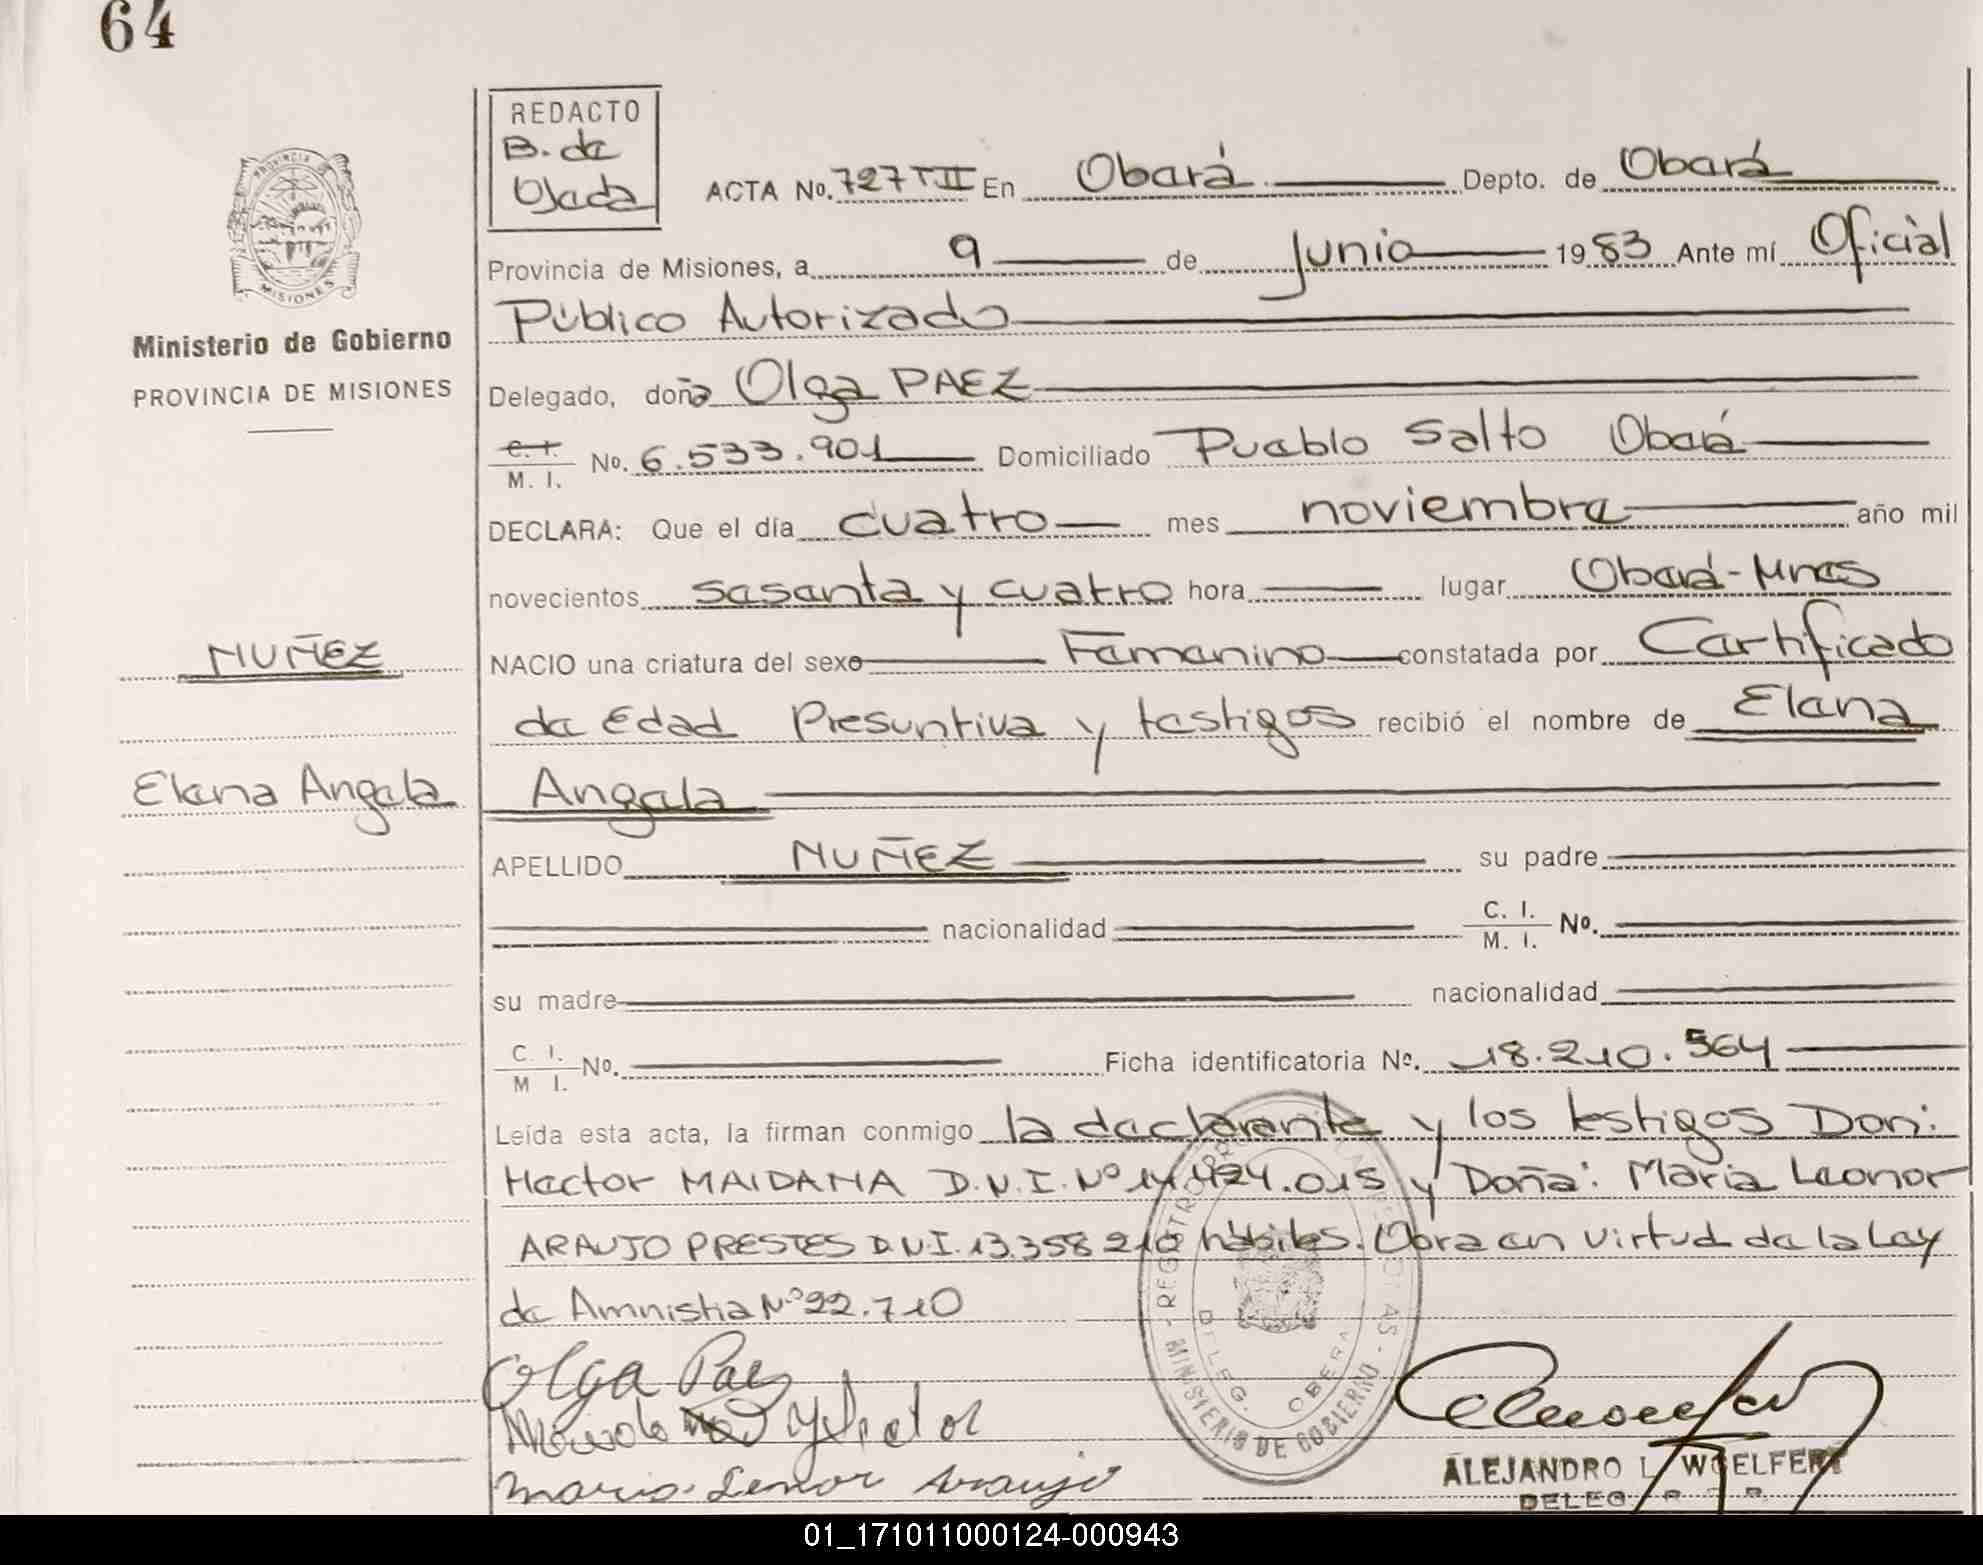 64
REDACTO
B. de
Ojeda
ACTA No. 727 T II En Oberá Depto. de Oberá
Provincia de Misiones, a 9 de Junio 1983 Ante mí Oficial
Público Autorizado
Delegado, doña Olga PAEZ
C. I. / M. I. No. 6.533.901 Domiciliado Pueblo Salto Oberá
DECLARA: Que el día cuatro mes noviembre año mil
novecientos sesenta y cuatro hora lugar Oberá-Mnes
NACIO una criatura del sexo Femenino constatada por Certificado
de Edad Presuntiva y testigos recibió el nombre de Elena
Angela
APELLIDO NUÑEZ su padre
nacionalidad C. I. / M. I. No.
su madre nacionalidad
C. I. / M I. No. Ficha identificatoria No. 18.210.564
Leída esta acta, la firman conmigo la declarante y los testigos Don:
Hector MAIDANA D.N.I. Nº 14.424.015 y Doña: Maria Leonor
ARAUJO PRESTES D.N.I. 13.358 210 hábiles. Obra en virtud de la Ley
de Amnistia Nº 22.710
Olga Paez
Hector
Maria Lenor Araujo
PROVINCIA DE
MISIONES
Ministerio de Gobierno
PROVINCIA DE MISIONES
NUÑEZ
Elena Angela
MINISTERIO DE GOBIERNO
DELEG. OBERA
ALEJANDRO L. WOELFERT
DELEG
01_171011000124-000943